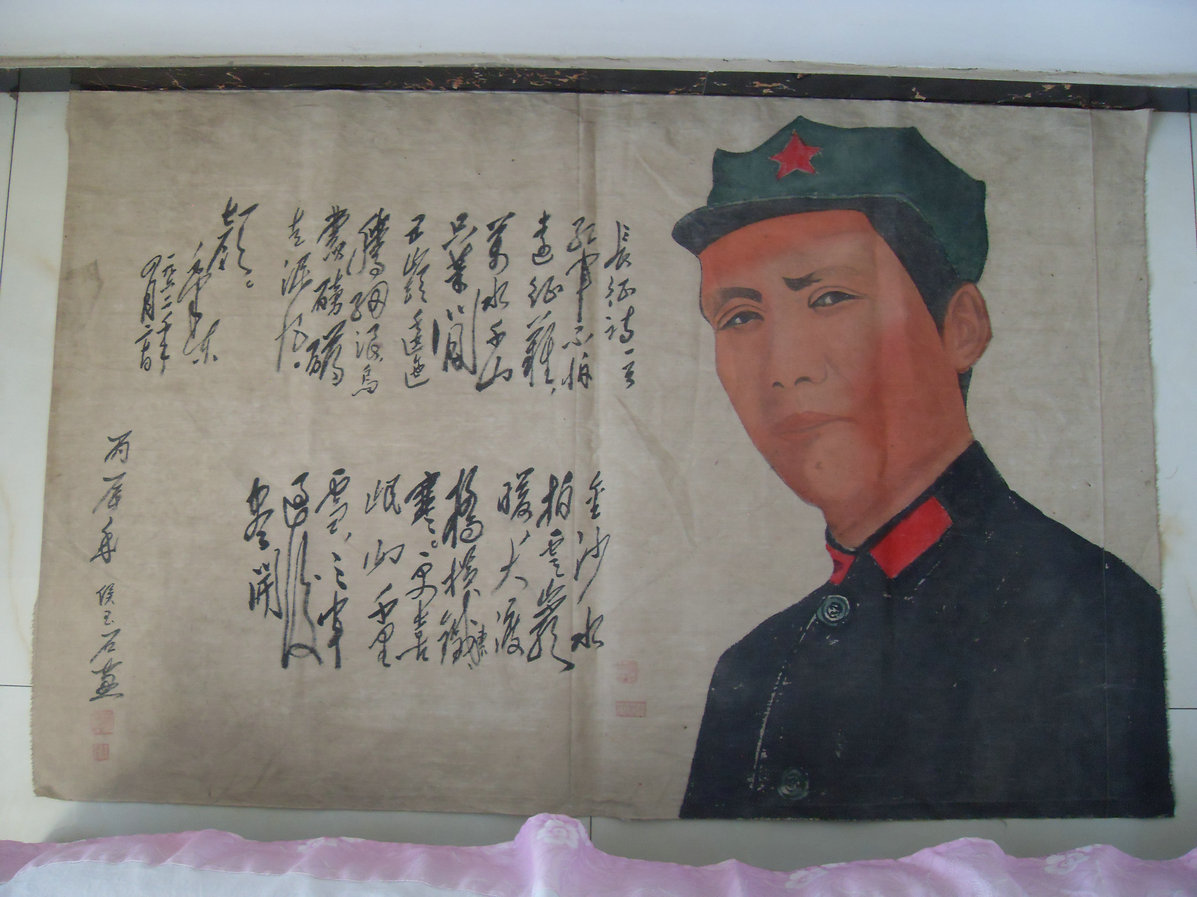 長征詩一首
紅軍不怕
遠征難，
萬水千山
只等閒
五嶺逶迤
騰細浪烏
蒙磅礴
走泥丸。
金沙水
拍雲巖
暖大渡
橋橫鐵索
寒。更喜
岷山千里
雪，三軍
過後
盡開
顏。
毛澤東
一九六二年
四月廿日
丙辰年 侯玉石畫